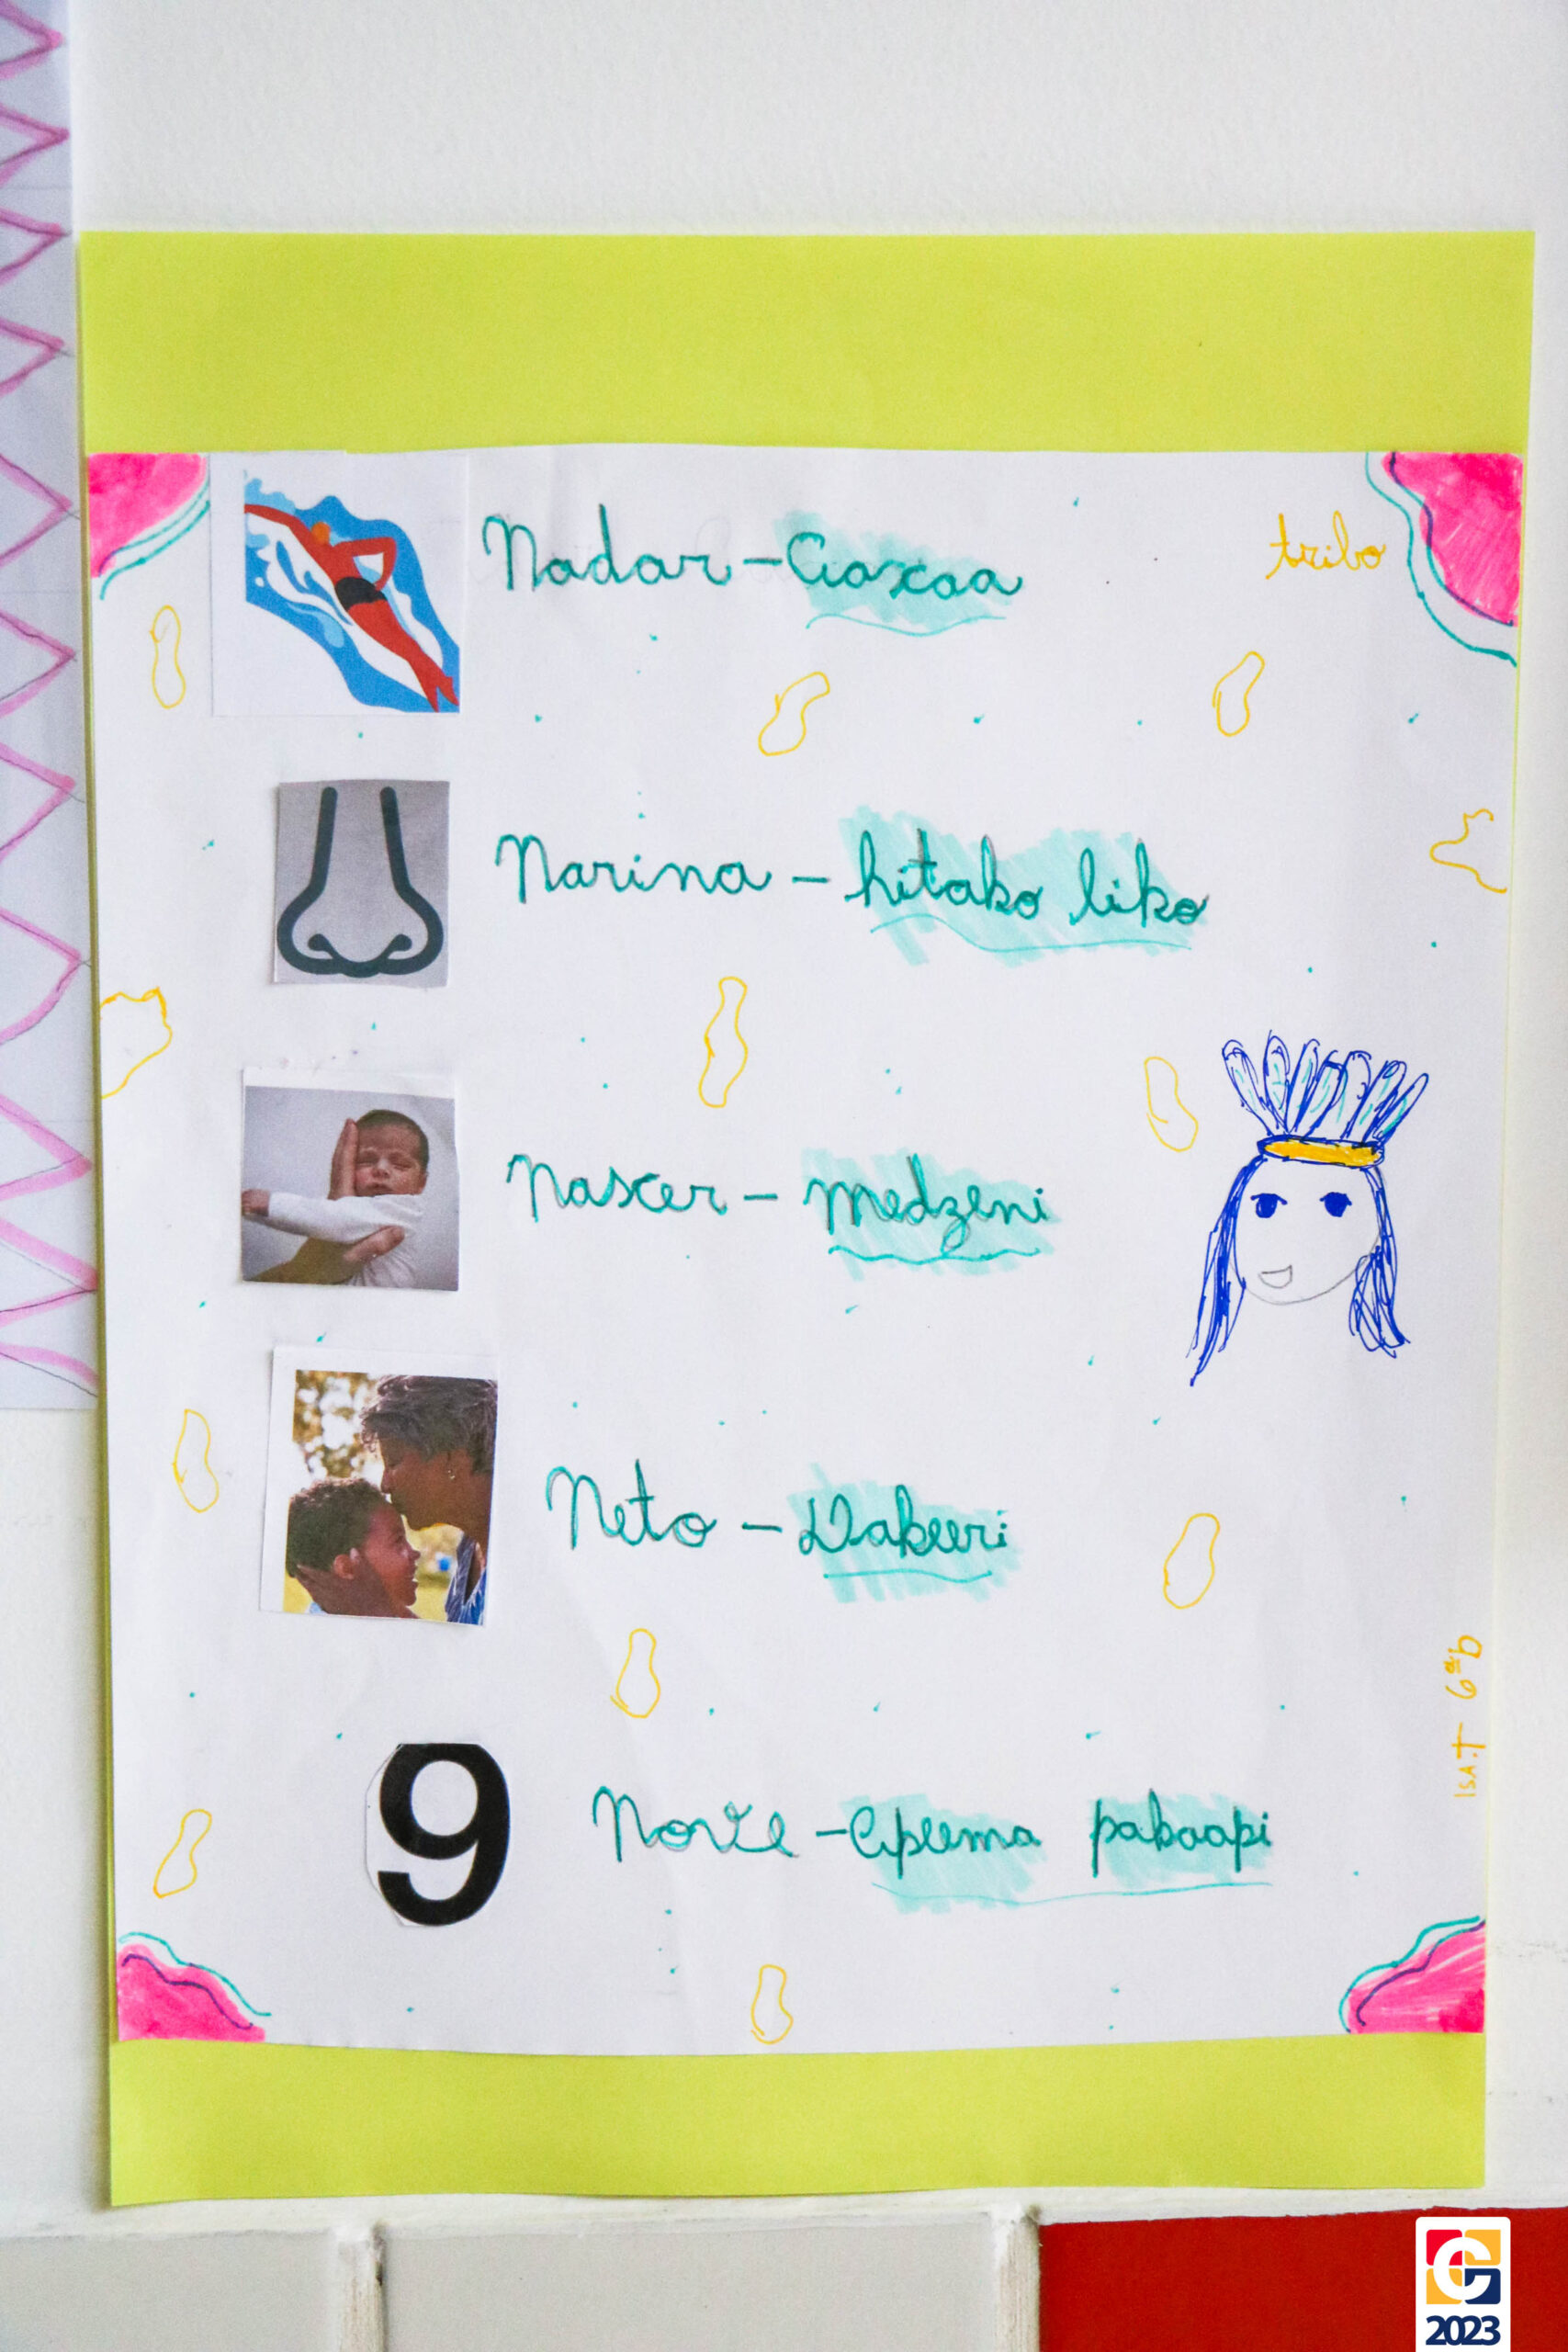 Nadar - Ciaxaa
tribo
Narina - hitako liko
Nascer - medzeni
Neto - Dakeeri
9
Nove - Cipeema pakaapi
ISA.T 6ºb
2023